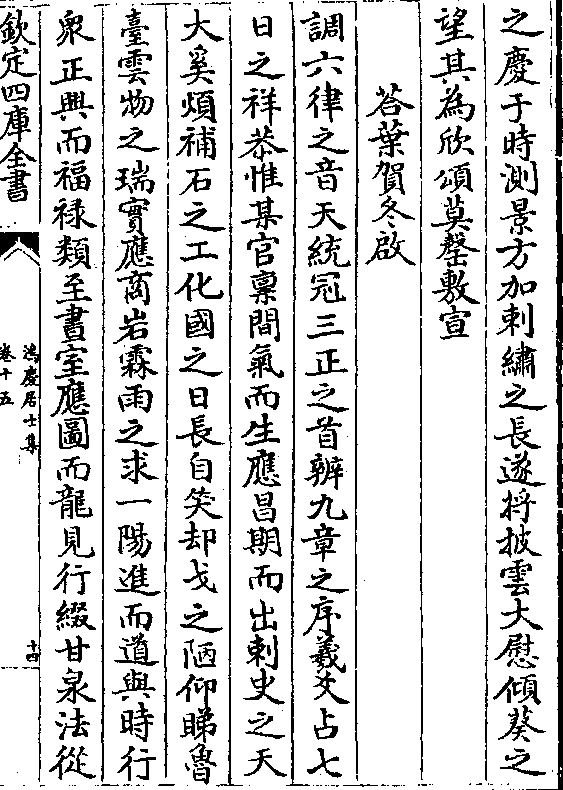 之慶于時測景方加刺繡之長遂將披雲大慰傾葵之
望其為欣頌莫罄敷宣
荅葉賀冬啟
調六律之音天統冠三正之首辨九章之序羲爻占七
日之祥恭惟某官稟間氣而生應昌期而出刺史之天
大奚煩補石之工化國之日長自笑却戈之陋仰睇魯
臺雲物之瑞實應商岩霖雨之求一陽進而道與時行
衆正興而福禄類至畫室應圖而龍見行綴甘泉法從
欽定四庫全書
鴻慶居士集
卷十五
十四